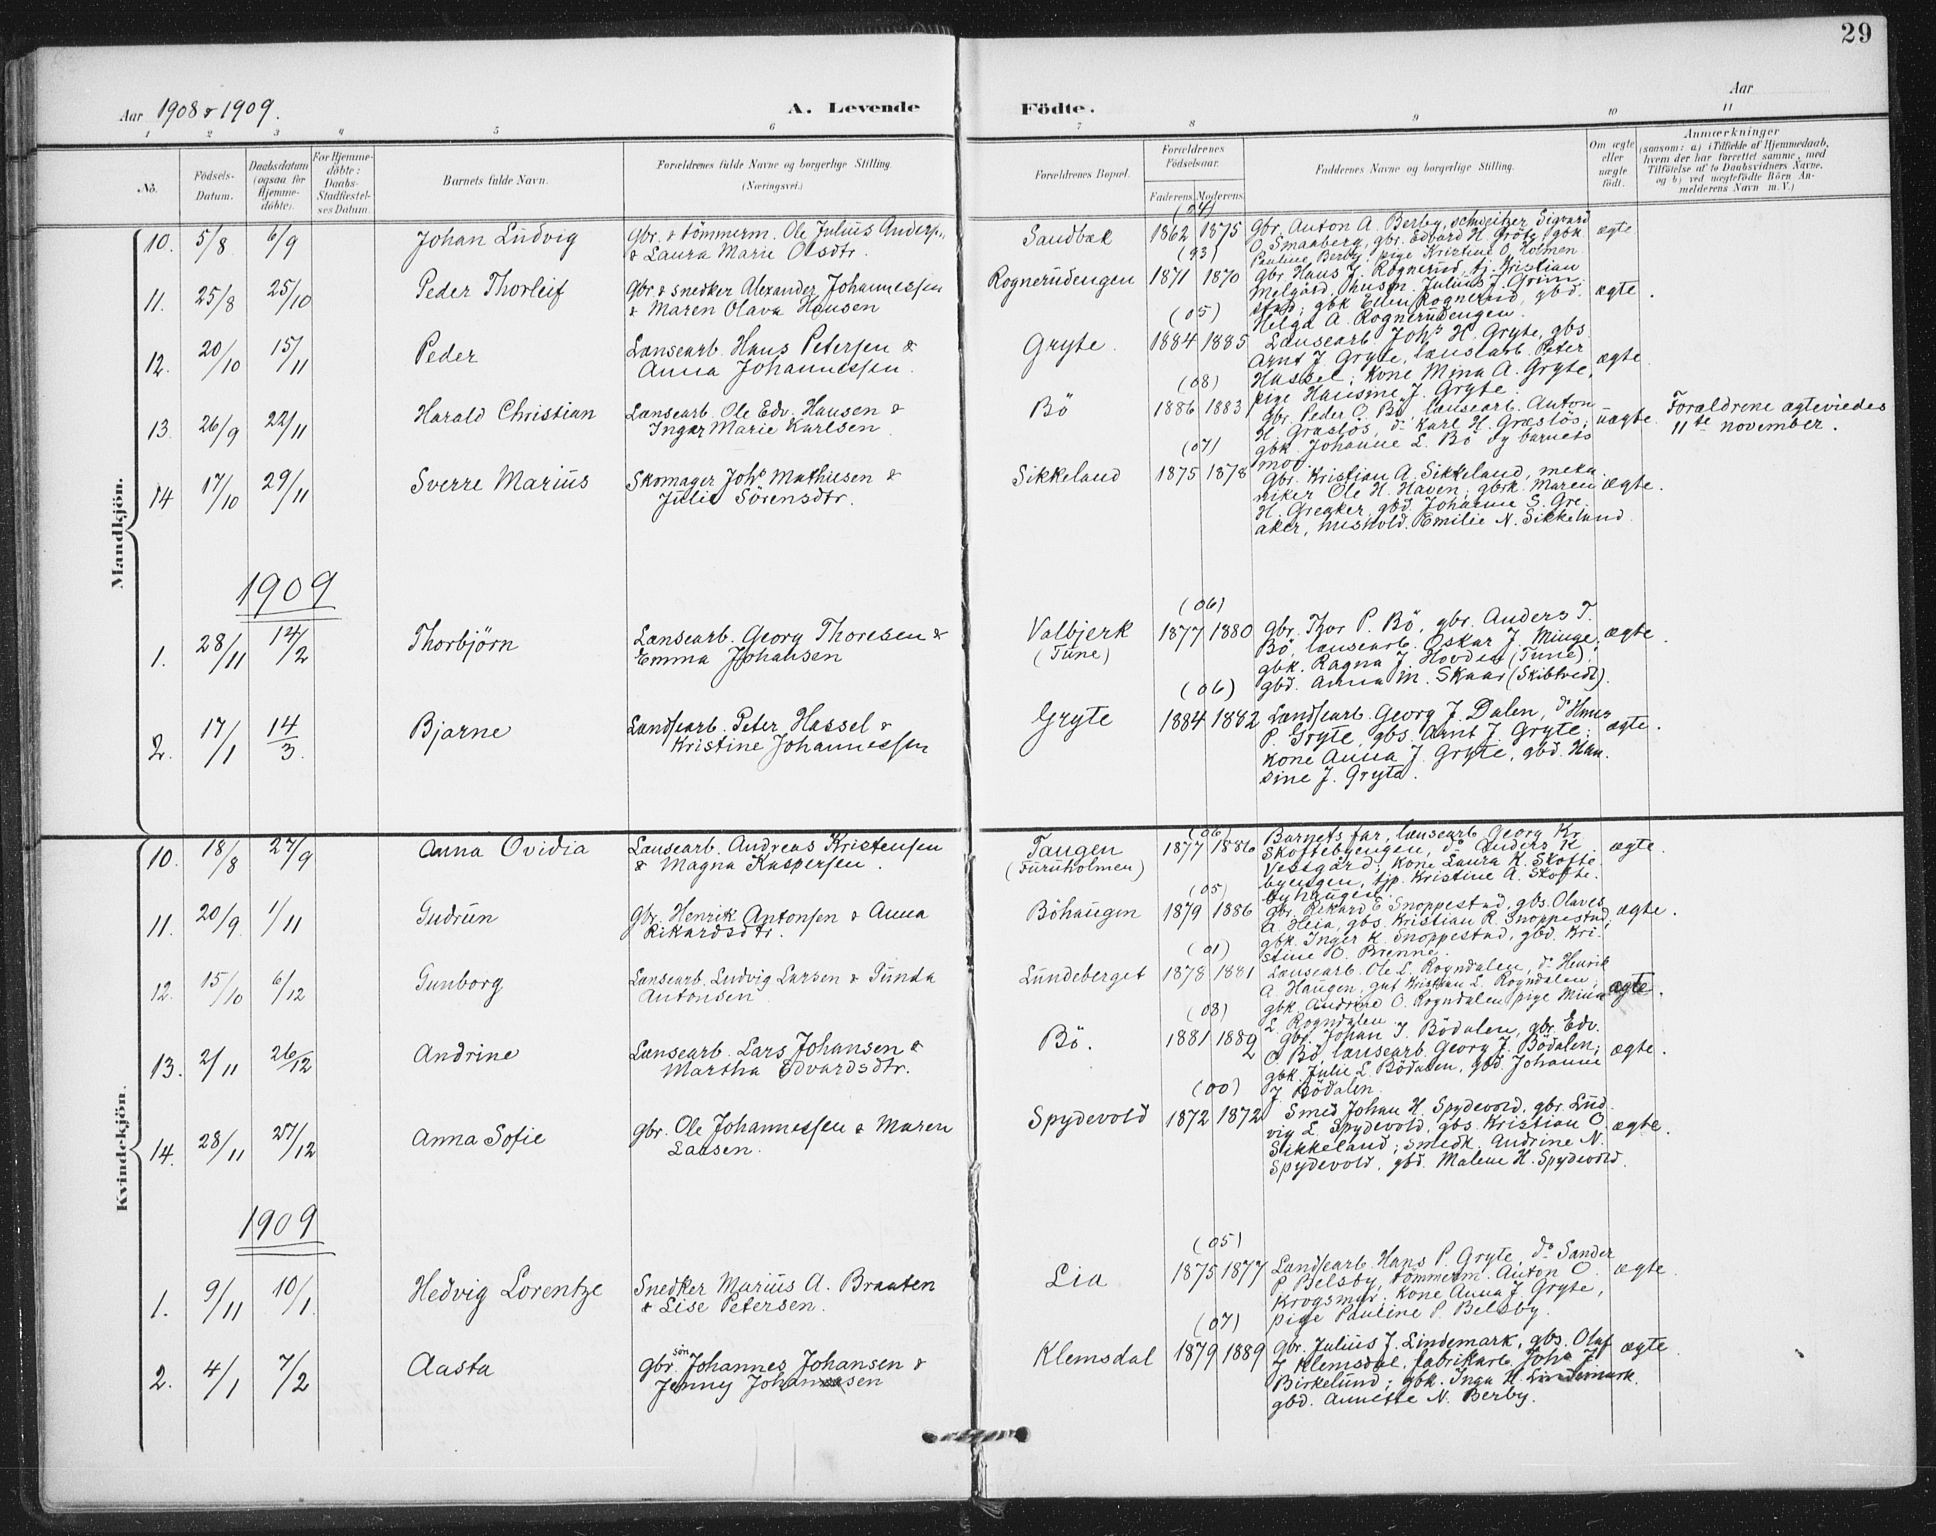 29
Aar 1908 & 1909. A. Levende Födte. Aar
1 2 3 4 5 6 7 8 9 10 11
No.
Födsels-Datum.
Daabsdatum (ogsaa for Hjemme-döbte).
For Hjemme-döbte: Daabs-Stadfæstel-ses Datum.
Barnets fulde Navn.
Forældrenes fulde Navne og borgerlige Stilling.
(Næringsvei.)
Forældrenes Bopæl.
Forældrenes Födselsaar.
Faderens. Moderens.
Faddernes Navne og borgerlige Stilling.
Om ægte eller uægte födt.
Anmærkninger
(saasom: a) i Tilfælde af Hjemmedaab,
hvem der har forrettet samme, med
Tilföielse af to Daabsvidners Navne,
og b) ved uægtefödte Börn An-
melderens Navn m. V.)
Mandkjön.
10. 5/8 6/9 Johan Ludvig
Gbr. & tömmerm. Ole Julius Anders.,
& Laura Marie Olsdtr.
Sandbæk (04) 1862 1875
Gbr. Anton A. Berby, schweitzer Sigvard
O. Smaaberg, gbr. Edvard H. Gröty, gbk.
Pauline Berby, pige Kristine O. Holmen
ægte
11. 25/8 25/10 Peder Thorleif
Gbr. & snedker Alexander Johannessen
& Maren Olava Hansen
Rognerüdengen (93) 1871 1870
Gbr. Hans J. Rognerüd, tj. Kristian
Melgård, husm. Julius J. Grim-
stad; gbk Ellen Rognerüd, gbd.
Helga A. Rognerüdengen.
ægte.
12. 20/10 15/11 Peder
Lænsearb. Hans Petersen &
Anna Johannessen.
Gryte. (05) 1884 1885
Lænsearb. Johs H. Gryte, gbs
Arnt J. Gryte, lænsearb. Peter
Hassel; kone Mina A. Gryte,
pige Hansine J. Gryte.
ægte.
13. 26/9 22/11 Harald Christian
Lænsearb. Ole Edv. Hansen &
Inger Marie Karlsen
Bö (08) 1886 1883
Gbr. Peder O. Bö, lænsearb. Anton
H. Græslös, do Karl H. Græslös;
gbk. Johanne L. Bö og barnets
mor.
uægte.
Forældrene ægteviedes
11te november.
14 17/10 29/11 Sverre Marius
Skomager Johs Mathiesen &
Julie Sörensdtr.
Sikkeland (07) 1875 1878
Gbr. Kristian A. Sikkeland, meka
niker Ole H. Haven; gbrk. Maren
H. Greaker, gbd. Johanne S. Gre-
aker, hushold. Emilie N. Sikkeland.
ægte.
1909
1. 28/11 14/2 Thorbjörn
Lænsearb. Georg Thoresen &
Emma Johansen
Valbjerk
(Tune)
(06) 1877 1880
gbr. Thor P. Bö, gbr. Anders T.
Bö, lænsearb. Oskar J. Minge;
gbk. Ragna J. Hovden (Tune),
gbd. Anna M. Skaar (Skibtvedt).
ægte.
2. 17/1 14/3 Bjarne
Landsearb. Peter Hassel &
Kristine Johannessen
Gryte (06) 1884 1882
Landsearb. Georg J. Dalen, do Hans
P. Gryte, gbs. Arnt J. Gryte;
kone Anna J. Gryte, gbd. Han
sine J. Gryte.
ægte.
Kvindekjön.
10. 18/8 27/9 Anna Ovidia
Lænsearb. Andreas Kristensen
& Magna Kaspersen.
Tangen
(Furuholmen)
(06) 1877 1886
Barnets far, lænsearb Georg Kr.
Skoftebyengen, do Anders K
Vestgård; kone Laura K. Skofte-
byengen, tjp. Kristine A. Skofte-
byhaugen.
ægte.
11. 20/9 1/11 Gudrün
Gbr. Henrik Antonsen & Anna
Rikardsdtr.
Böhaugen (05) 1879 1886
Gbr. Rikard E. Snoppestad, gbs. Olaves
A. Heia, gbs. Kristian R. Snoppestad,
gbk. Inger K. Snoppestad, gbd. Kri-
stine O. Brenne.
ægte.
12. 15/10 6/12 Gunborg
Lænsearb. Ludvig Larsen & Tunda
Antonsen
Lundeberget (01) 1878 1881
Lænsearb. Ole L. Rogndalen, do Henrik
A. Haugen, gut Kristian L. Rogndalen;
gbk. Andrine O. Rogndalen pige Mina
L. Rogndalen
ægte.
13. 2/11 26/12 Andrine
Lænsearb. Lars Johansen &
Martha Edvardsdtr.
Bö. (08) 1881 1882
gbr. Johan J. Bödalen, gbr. Edv.
O. Bö, lænsearb. Georg J. Bödalen;
gbk. Julie L. Bödalen, gbd. Johanne
J. Bödalen.
ægte.
14. 28/11 27/12 Anna Sofie
gbr. Ole Johannessen & Maren
Larsen.
Spydevold (00) 1872 1872
Smed Johan H. Spydevold, gbr. Lud-
vig L. Spydevold, gbs. Kristian O.
Sikkeland; smedk. Andrine N.
Spydevold, gbd. Malene H. Spydevold.
ægte.
1909
1. 9/11 10/1 Hedvig Lorentze
Snedker Marius A. Braaten
& Lise Petersen.
Lia (05) 1875 1877
Landsearb. Hans P. Gryte, do Sander
P. Belsby, tömmerm. Anton O.
Krogsmyr; kone Anna J. Gryte,
pige Pauline P. Belsby.
ægte.
2. 4/1 7/2 Aasta
gbr.sön Johannes Johansen &
Jenny Johansen
Klemsdal (07) 1879 1889
Gbr. Julius J. Lindemark, gbs. Olaf
J. Klemsdal, fabrikarb. Johs J.
Birkelund; gbk. Inga H. Lindemark
gbd. Annette N. Berby.
ægte.